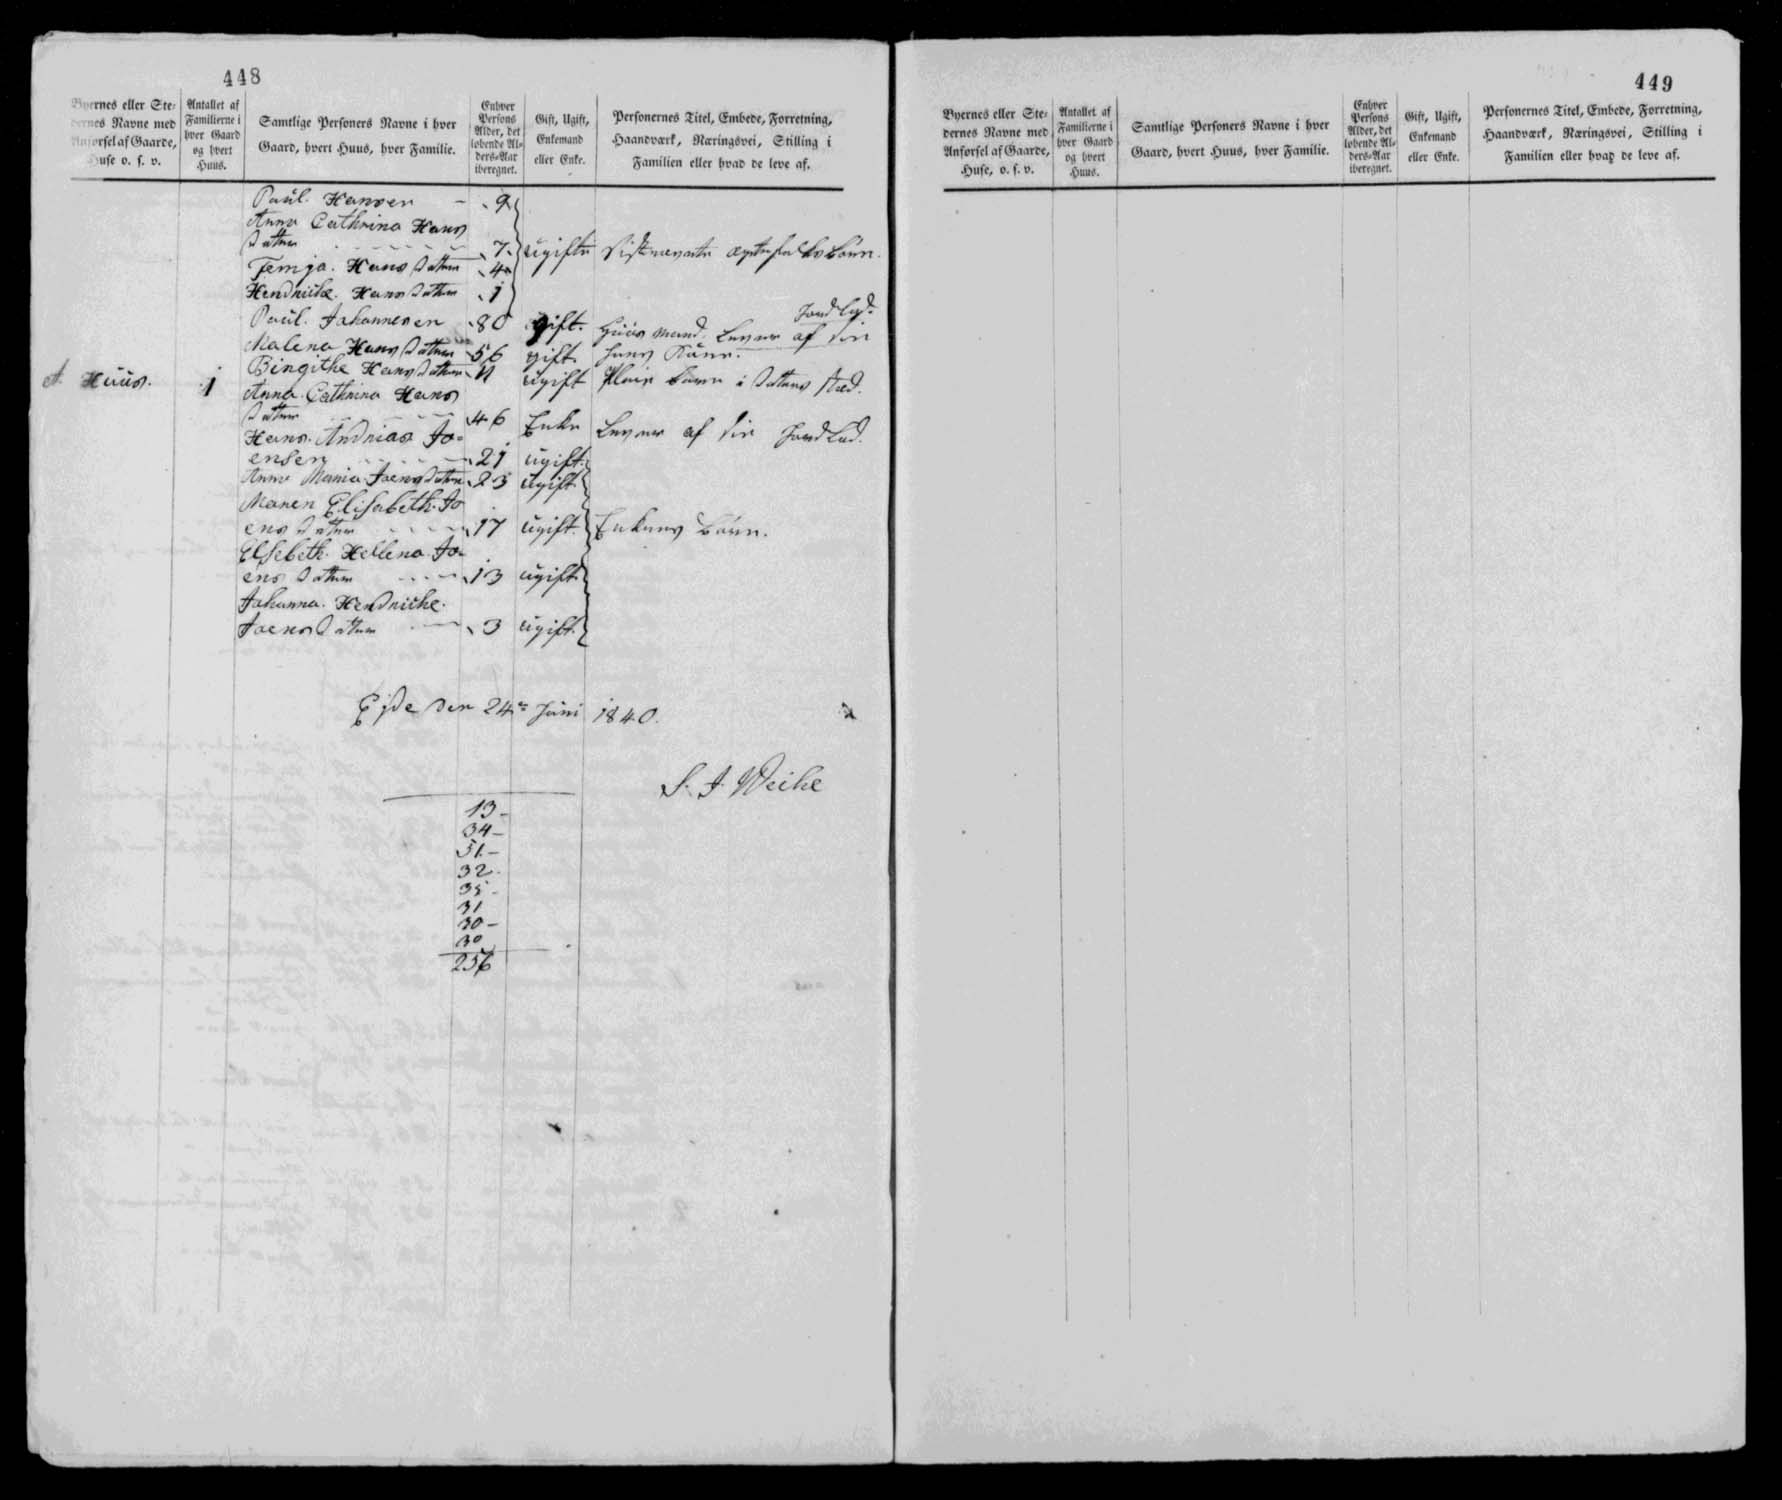 448
Byernes eller Ste-
dernes Navne med
Anførsel af Gaarde,
Huse o. s. v.
Antallet af
Familierne i
hver Gaard
og hvert
Huus.
Samtlige Personers Navne i hver
Gaard, hvert Huus, hver Familie.
Enhver
Persons
Alder, det
løbende Al-
ders-Aar
iberegnet.
Gift, Ugift,
Enkemand
eller Enke.
Personernes Titel, Embede, Forretning,
Haandværk, Næringsvei, Stilling i
Familien eller hvad de leve af.
Paul Hansen 9
Anna Cathrina Hans
Datter 7 ugifte Sidstnævnte Ægtefolks Børn.
Hans Datter 4
Hendricke Hans Datter 1
Jordlod.
Paul Johannesen 80 gift. Huus Mand. Lever af sin
Malena Hans Datter 56 gift hans Kone.
Birgithe Hans Datter 11 ugift Pleie Barn i Datters Sted.
A. Huus. 1 Anna Cathrina Hans
Datter 46 Enke Lever af sin Jordlod.
Hans Andrias Jo-
ensen 21 ugift.
Anna Maria Joens Datter 23 ugift
Maren Elisabeth Jo
ens Datter 17 ugift. Enkens Børn.
Elsebeth Hellena Jo-
ens Datter 13 ugift
Johanna Hendricke
Joens Datter 3 ugift.
Ejde den 24de Juni 1840.
S. J. Weihe
13-
34-
51.-
32.
35-
31
30-
30
256
449
Byernes eller Ste-
dernes Navne med
Anførsel af Gaarde,
Huse, o. s. v.
Antallet af
Familierne i
hver Gaard
og hvert
Huus.
Samtlige Personers Navne i hver
Gaard, hvert Huus, hver Familie.
Enhver
Persons
Alder, det
løbende Al-
ders-Aar
iberegnet.
Gift, Ugift,
Enkemand
eller Enke.
Personernes Titel, Embede, Forretning,
Haandværk, Næringsvei, Stilling i
Familien eller hvad de leve af.